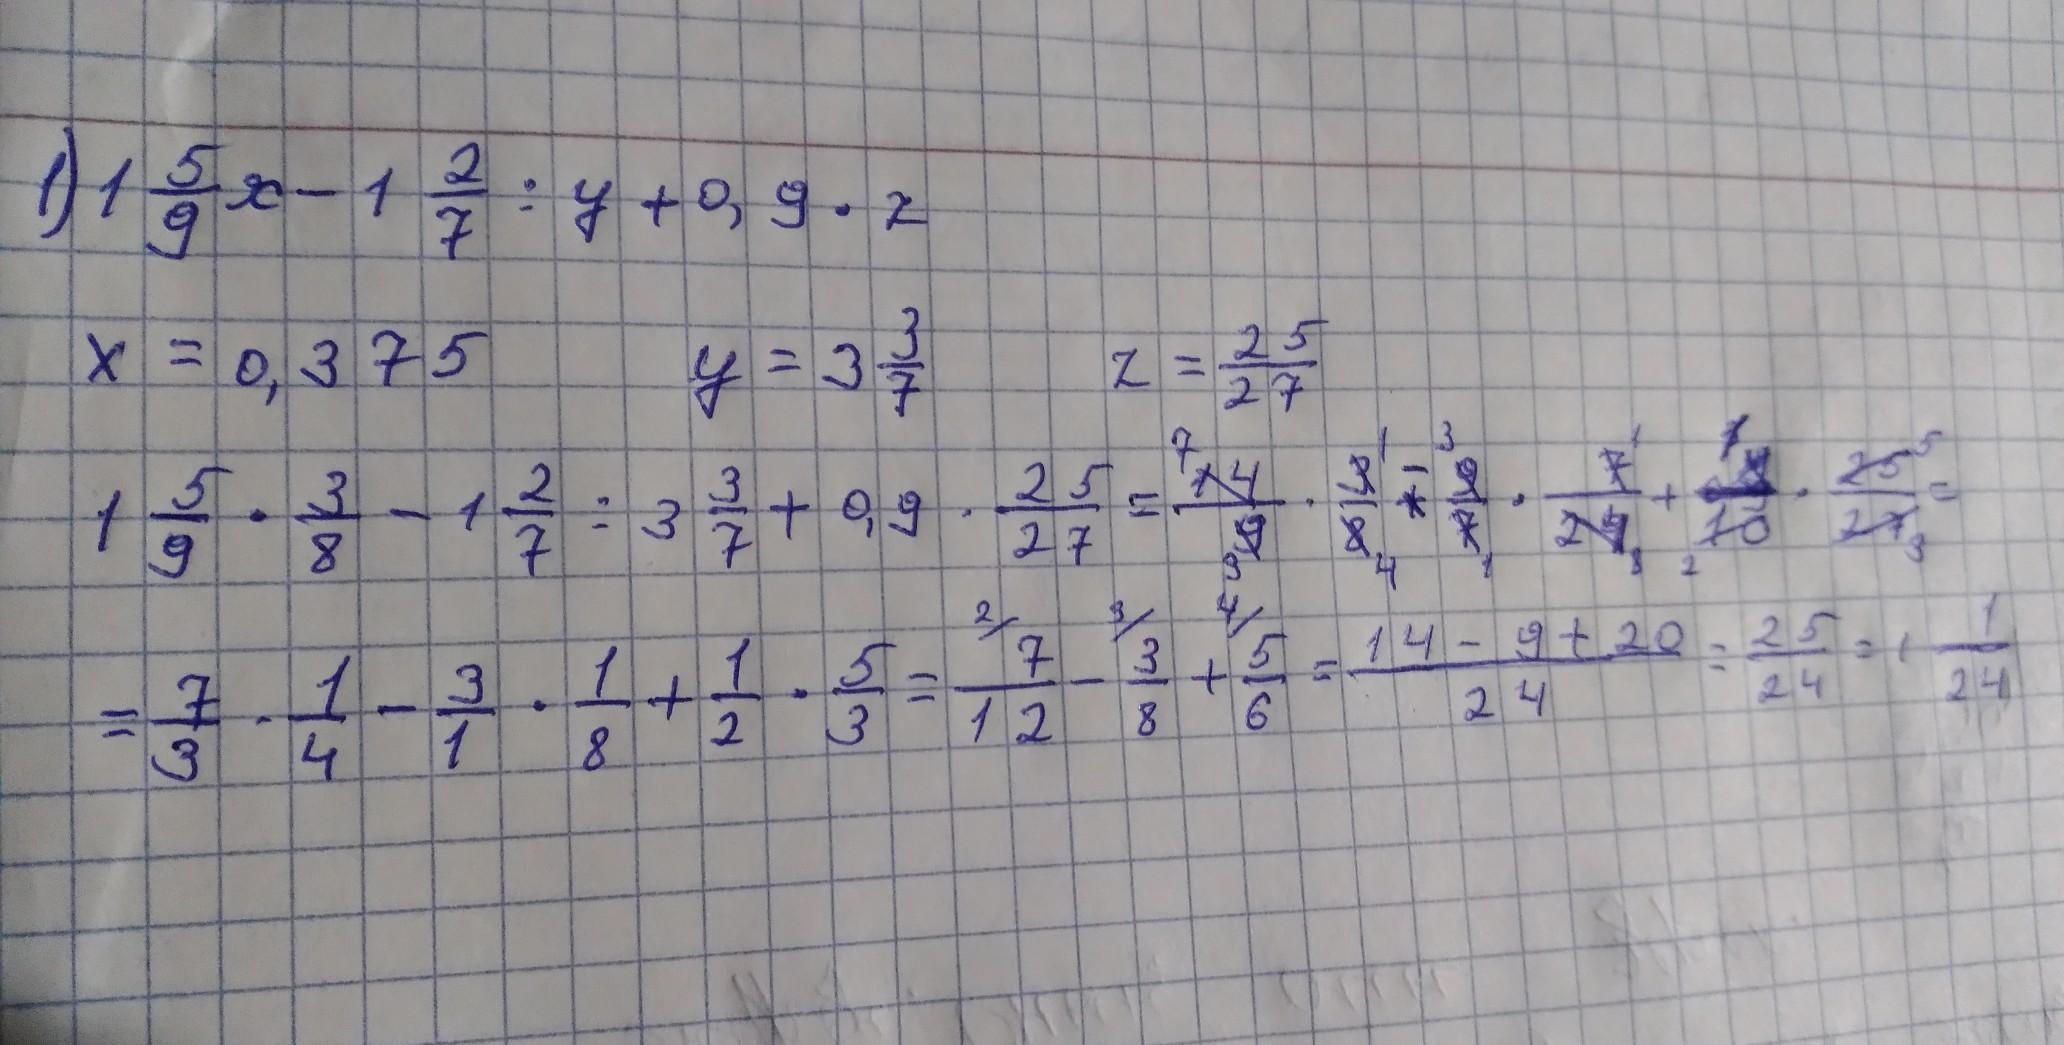 1) 1 5/9 x - 1 2/7 : y + 0,9 · z
x = 0,375 y = 3 3/7 z = 25/27
1 5/9 · 3/8 - 1 2/7 : 3 3/7 + 0,9 · 25/27 = 14/9 · 3/8 - 9/7 · 7/24 + 9/10 · 25/27 =
= 7/3 · 1/4 - 3/1 · 1/8 + 1/2 · 5/3 = 2/ 7/12 - 3/ 3/8 + 4/ 5/6 = 14 - 9 + 20/24 = 25/24 = 1 1/24